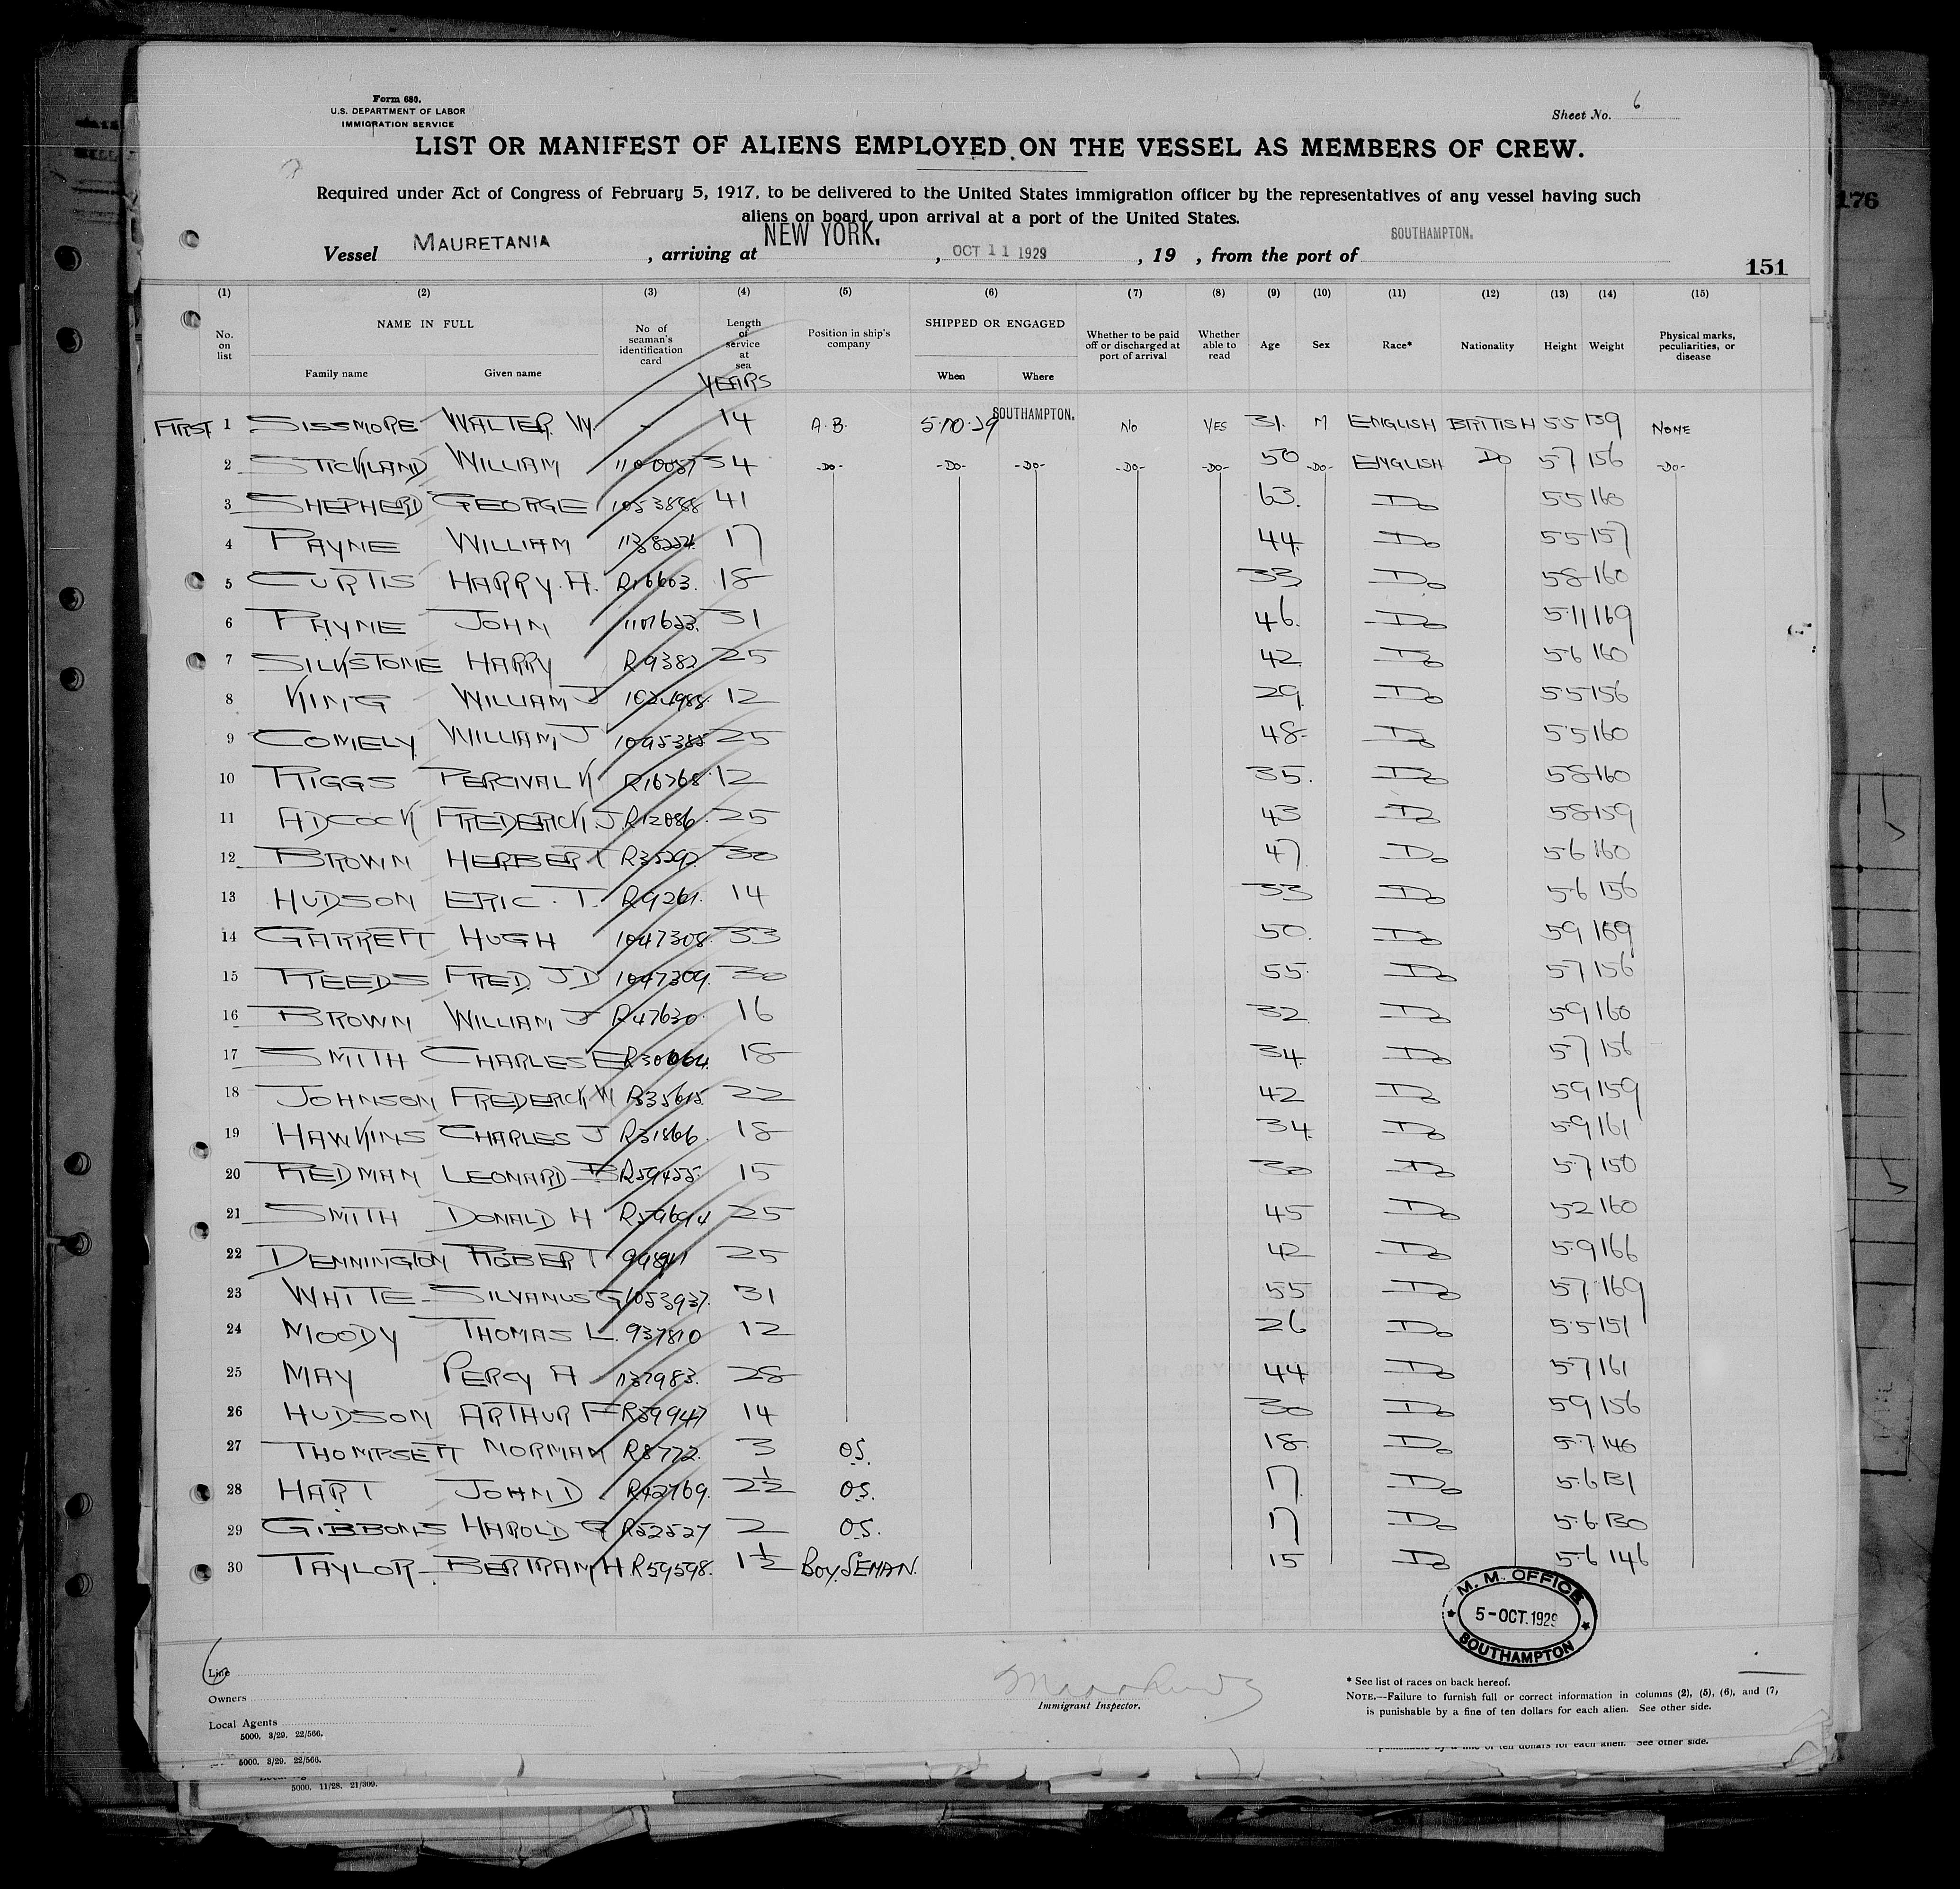 Form 680.
U.S. DEPARTMENT OF LABOR
IMMIGRATION SERVICE
Sheet No. 6
LIST OR MANIFEST OF ALIENS EMPLOYED ON THE VESSEL AS MEMBERS OF CREW.
Required under Act of Congress of February 5, 1917, to be delivered to the United States immigration officer by the representatives of any vessel having such
aliens on board upon arrival at a port of the United States.
Vessel MAURETANIA, arriving at NEW YORK., OCT 11 1929, 19 , from the port of SOUTHAMPTON.
151
176
(1) (2) (3) (4) (5) (6) (7) (8) (9) (10) (11) (12) (13) (14) (15)
No. on list NAME IN FULL Family name Given name No of seaman's identification card Length of service at sea YEARS Position in ship's company SHIPPED OR ENGAGED When Where Whether to be paid off or discharged at port of arrival Whether able to read Age Sex Race* Nationality Height Weight Physical marks, peculiarities, or disease
FIRST 1 SISSMORE WALTER W - 14 A.B. 5-10-29 SOUTHAMPTON. NO YES 31. M ENGLISH BRITISH 5 5 139 NONE
2 STICKLAND WILLIAM 34 -DO- -DO- -DO- -DO- -DO- 50 -DO- ENGLISH DO 5 7 156 -DO-
3 SHEPHERD GEORGE 1053888 41 63. Do 5 5 160
4 PAYNE WILLIAM 17 44. Do 5 5 157
5 CURTIS HARRY. A. R16603. 18 33 Do 5 8 160
6 PAYNE JOHN 1107623. 31 46. Do 5 11 169
7 SILKSTONE HARRY R9382 25 42 Do 5 6 160
8 KING WILLIAM J 1024988 12 29 Do 5 5 156
9 COMELY WILLIAM J 1095385 25 48 Do 5 5 160
10 RIGGS PERCIVAL K R16768 12 35. Do 5 8 160
11 ADCOCK FREDERICK. J R12086. 25 43 Do 5 8 159
12 BROWN HERBERT 30 47 Do 5 6 160
13 HUDSON ERIC. T. R9261. 14 33 Do 5 6 156
14 GARRETT HUGH 1047308. 33 50. Do 5 9 169
15 REEDS FRED. J D 1047309. 30 55 Do 5 7 156
16 BROWN WILLIAM J R47630. 16 32 Do 5 9 160
17 SMITH CHARLES E R30064. 18 34 Do 5 7 156
18 JOHNSON FREDERICK W R35615. 22 42 Do 5 9 159
19 HAWKINS CHARLES J R31866. 18 34 Do 5 9 161
20 REDMAN LEONARD B R59455 15 30 Do 5 7 150
21 SMITH DONALD H R59694 25 45 Do 5 2 160
22 DENNINGTON ROBERT 25 42 Do 5 9 166
23 WHITE SILVANUS G 1053937. 31 55 Do 5 7 169
24 MOODY THOMAS L. 937810 12 26 Do 5 5 151
25 MAY PERCY A 1137983. 28 44 Do 5 7 161
26 HUDSON ARTHUR F R59947 14 30 Do 5 9 156
27 THOMPSETT NORMAN R8772. 3 O.S. 18 Do 5 7 146
28 HART JOHN D. R42769. 2½ O.S. 17 Do 5 6 131
29 GIBBONS HAROLD G R52527 2 O.S. 17 Do 5 6 130
30 TAYLOR BERTRAM H. R59598. 1½ BOY. SEMAN. 15 Do 5 6 146
M. M. OFFICE
5-OCT.1929
SOUTHAMPTON
6
Line
Owners
Local Agents
5000. 3/29. 22/566.
Immigrant Inspector.
* See list of races on back hereof.
NOTE.—Failure to furnish full or correct information in columns (2), (5), (6), and (7)
is punishable by a fine of ten dollars for each alien. See other side.
is punishable by a fine of ten dollars for each alien. See other side.
5000. 3/29. 22/566.
5000. 11/28. 21/309.